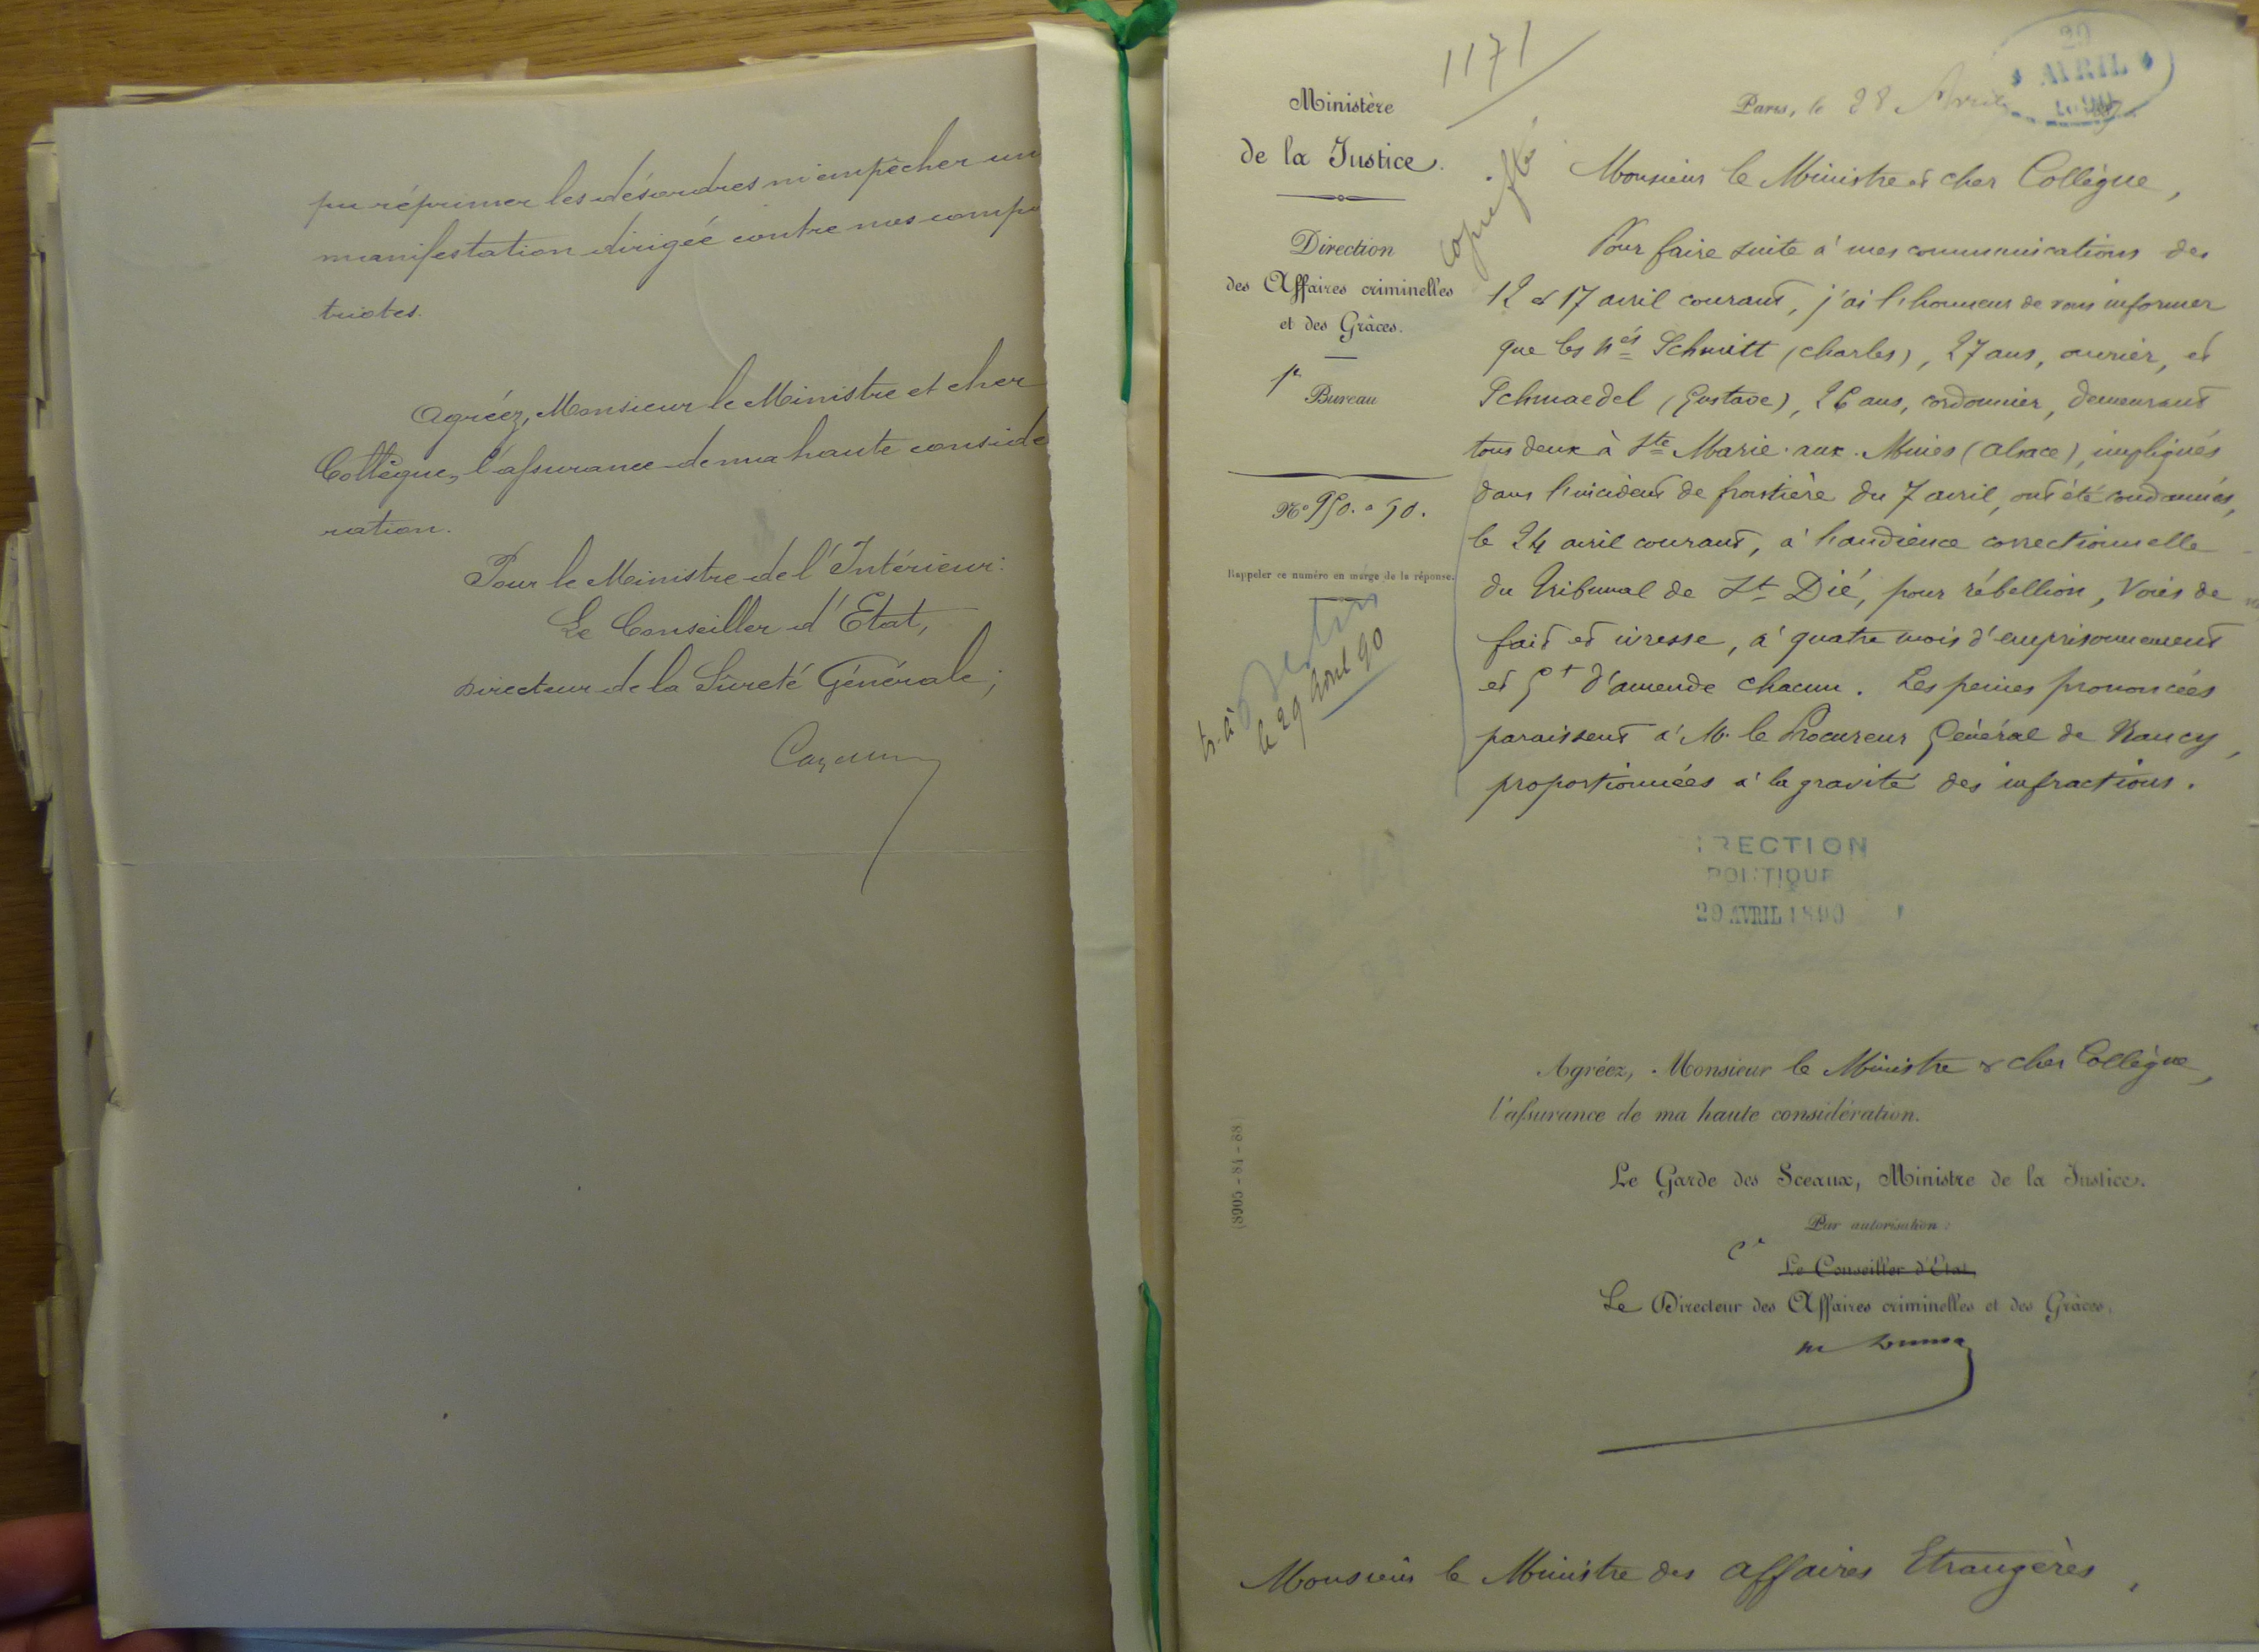 pu réprimer les désordres ni empêcher un
manifestation dirigée contre nos compa
triotes.
Agréez, Monsieur le Ministre et cher
Collègue, l'assurance de ma haute considé
ration.
Pour le Ministre de l'Intérieur:
Le Conseiller d'Etat,
Directeur de la Sûreté Générale;
1171
Ministère
de la Justice.
Direction
des Affaires criminelles
et des Grâces.
1er
Bureau
No 950. a 90.
Rappeler ce numéro en marge de la réponse.
tr. à Berlin
le 29 avril 90
(8905-84-88)
Paris, le 28 Avril
29
AVRIL
1890
Monsieur le Ministre et cher Collègue,
Pour faire suite à mes communications des
12 et 17 avril courant, j'ai l'honneur de vous informer
que les nés Schmitt (Charles), 27 ans, ouvrier, et
Schmaedel (Gustave), 26 ans, cordonnier, demeurant
tous deux à Ste Marie-aux-Mines (Alsace), impliqués
dans l'incident de frontière du 7 avril, ont été condamnés,
le 24 avril courant, à l'audience correctionnelle
du Tribunal de St Dié, pour rébellion, voies de
fait et ivresse, à quatre mois d'emprisonnement
et 5f d'amende chacun. Les peines prononcées
paraissent à M. le Procureur Général de Nancy,
proportionnées à la gravité des infractions.
IRECTION
POLITIQUE
29 AVRIL 1890
Agréez, Monsieur le Ministre & cher Collègue,
l'assurance de ma haute considération.
Le Garde des Sceaux, Ministre de la Justice.
Par autorisation:
Le Conseiller d'Etat
Le Directeur des Affaires criminelles et des Grâces.
Monsieur le Ministre des Affaires Etrangères,